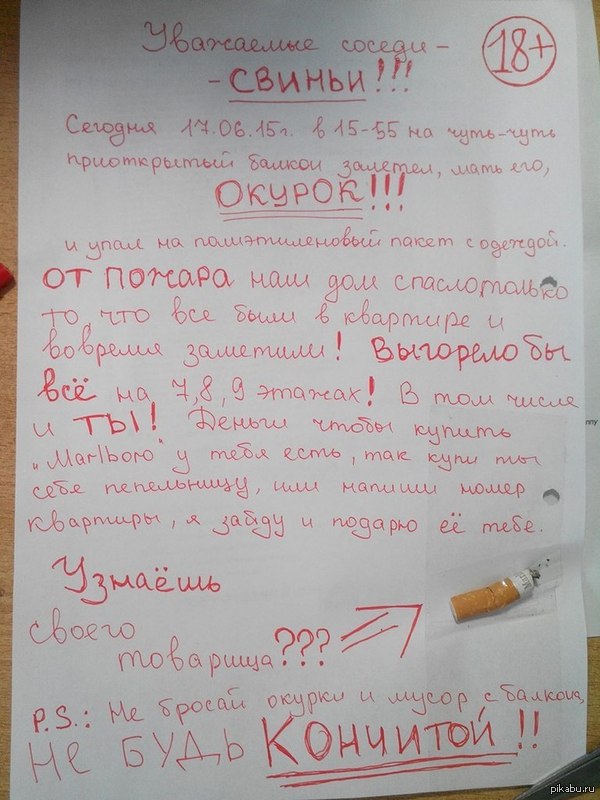 Уважаемые соседи -
18+
- СВИНЬИ!!!
Сегодня 17.06.15г. в 15-55 на чуть-чуть
приоткрытый балкон залетел, мать его,
ОКУРОК!!!
и упал на полиэтиленовый пакет с одеждой.
ОТ ПОЖАРА наш дом спасло только
то, что все были в квартире и
вовремя заметили! Выгорело бы
всё на 7,8,9 этажах! В том числе
и ТЫ! Деньги чтобы купить
„Marlboro" у тебя есть, так купи ты
себе пепельницу, или напиши номер
квартиры, я зайду и подарю её тебе.
Узнаёшь
своего
товарища???
P.S.: Не бросай окурки и мусор с балкона,
НЕ БУДЬ КОНЧИТОЙ!!
pikabu.ru